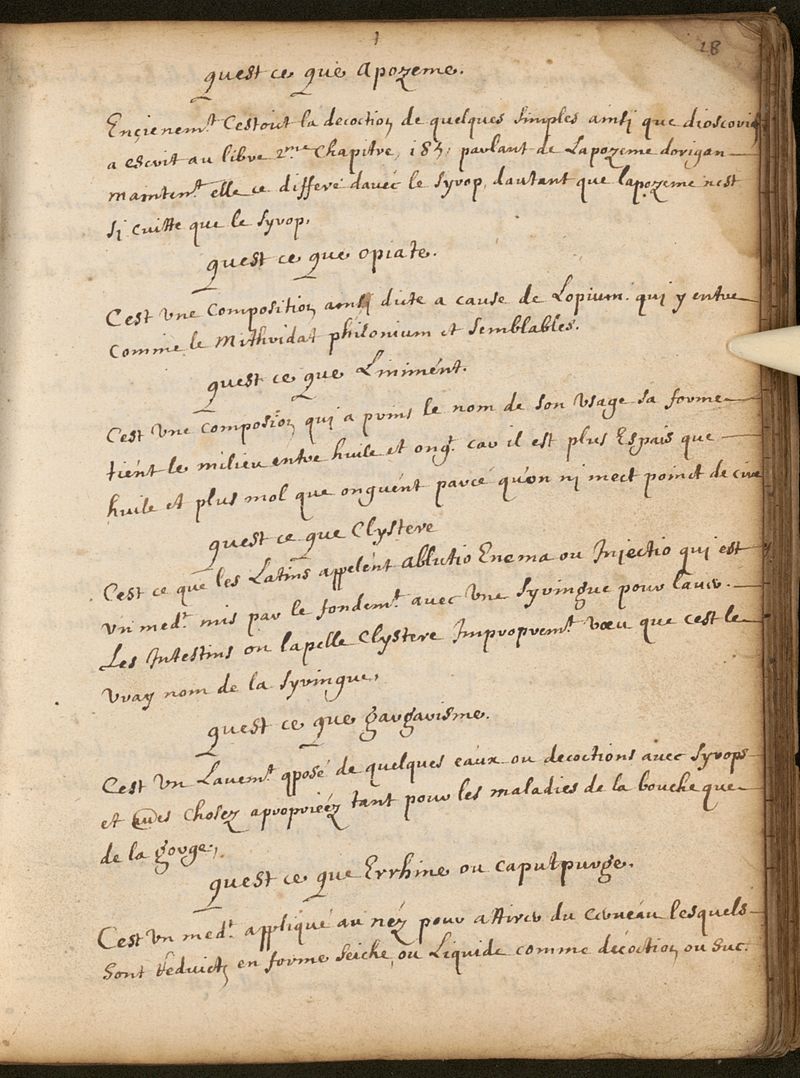 28
quest ce que apozeme.
Ençienem.t Cestoit la decoction de quelques simples ainsi que dioscorid
a escrit au libvre 2.me Chapitre, 183, parlant de Lapozeme dorigan
maintent.t elle ce differe davec le syrop, dautant que lapozeme nest
si cuitte que le syrop,
quest ce que opiate.
Cest une composition ainsi dicte a cause de Lopium. qui y entre
comme le Mithridat philonium et semblables.
quest ce que Liniment.
Cest une composion, qui a prins le nom de son usage sa forme
tient le milieu entre huile et ong.t car il est plus Espais que
huile et plus mol que onguent parce qu'on ni mect poinct de cire
quest ce que Clystere
Cest ce que les Latins appelent ablutio Enema ou Injectio qui est
un med.t mis par le fondem.t avec une syringue pour laver.
Les Intestins on lapelle Clystere Impropprem.t vœu que cest le
vray nom de la syringue,
quest ce que gargarisme.
Cest un Lavem.t qposé de quelques eaux ou decoctions avec syrops
et aues chosez aproprieéz tant pour les maladies de la bouche que
de la gorge,
quest ce que Errhine ou caputpurge.
Cest un med.t appliqué au néz pour attirer du cerveau lesquels
sont reduicts en forme seiche, ou Liquide comme decoction ou suc.